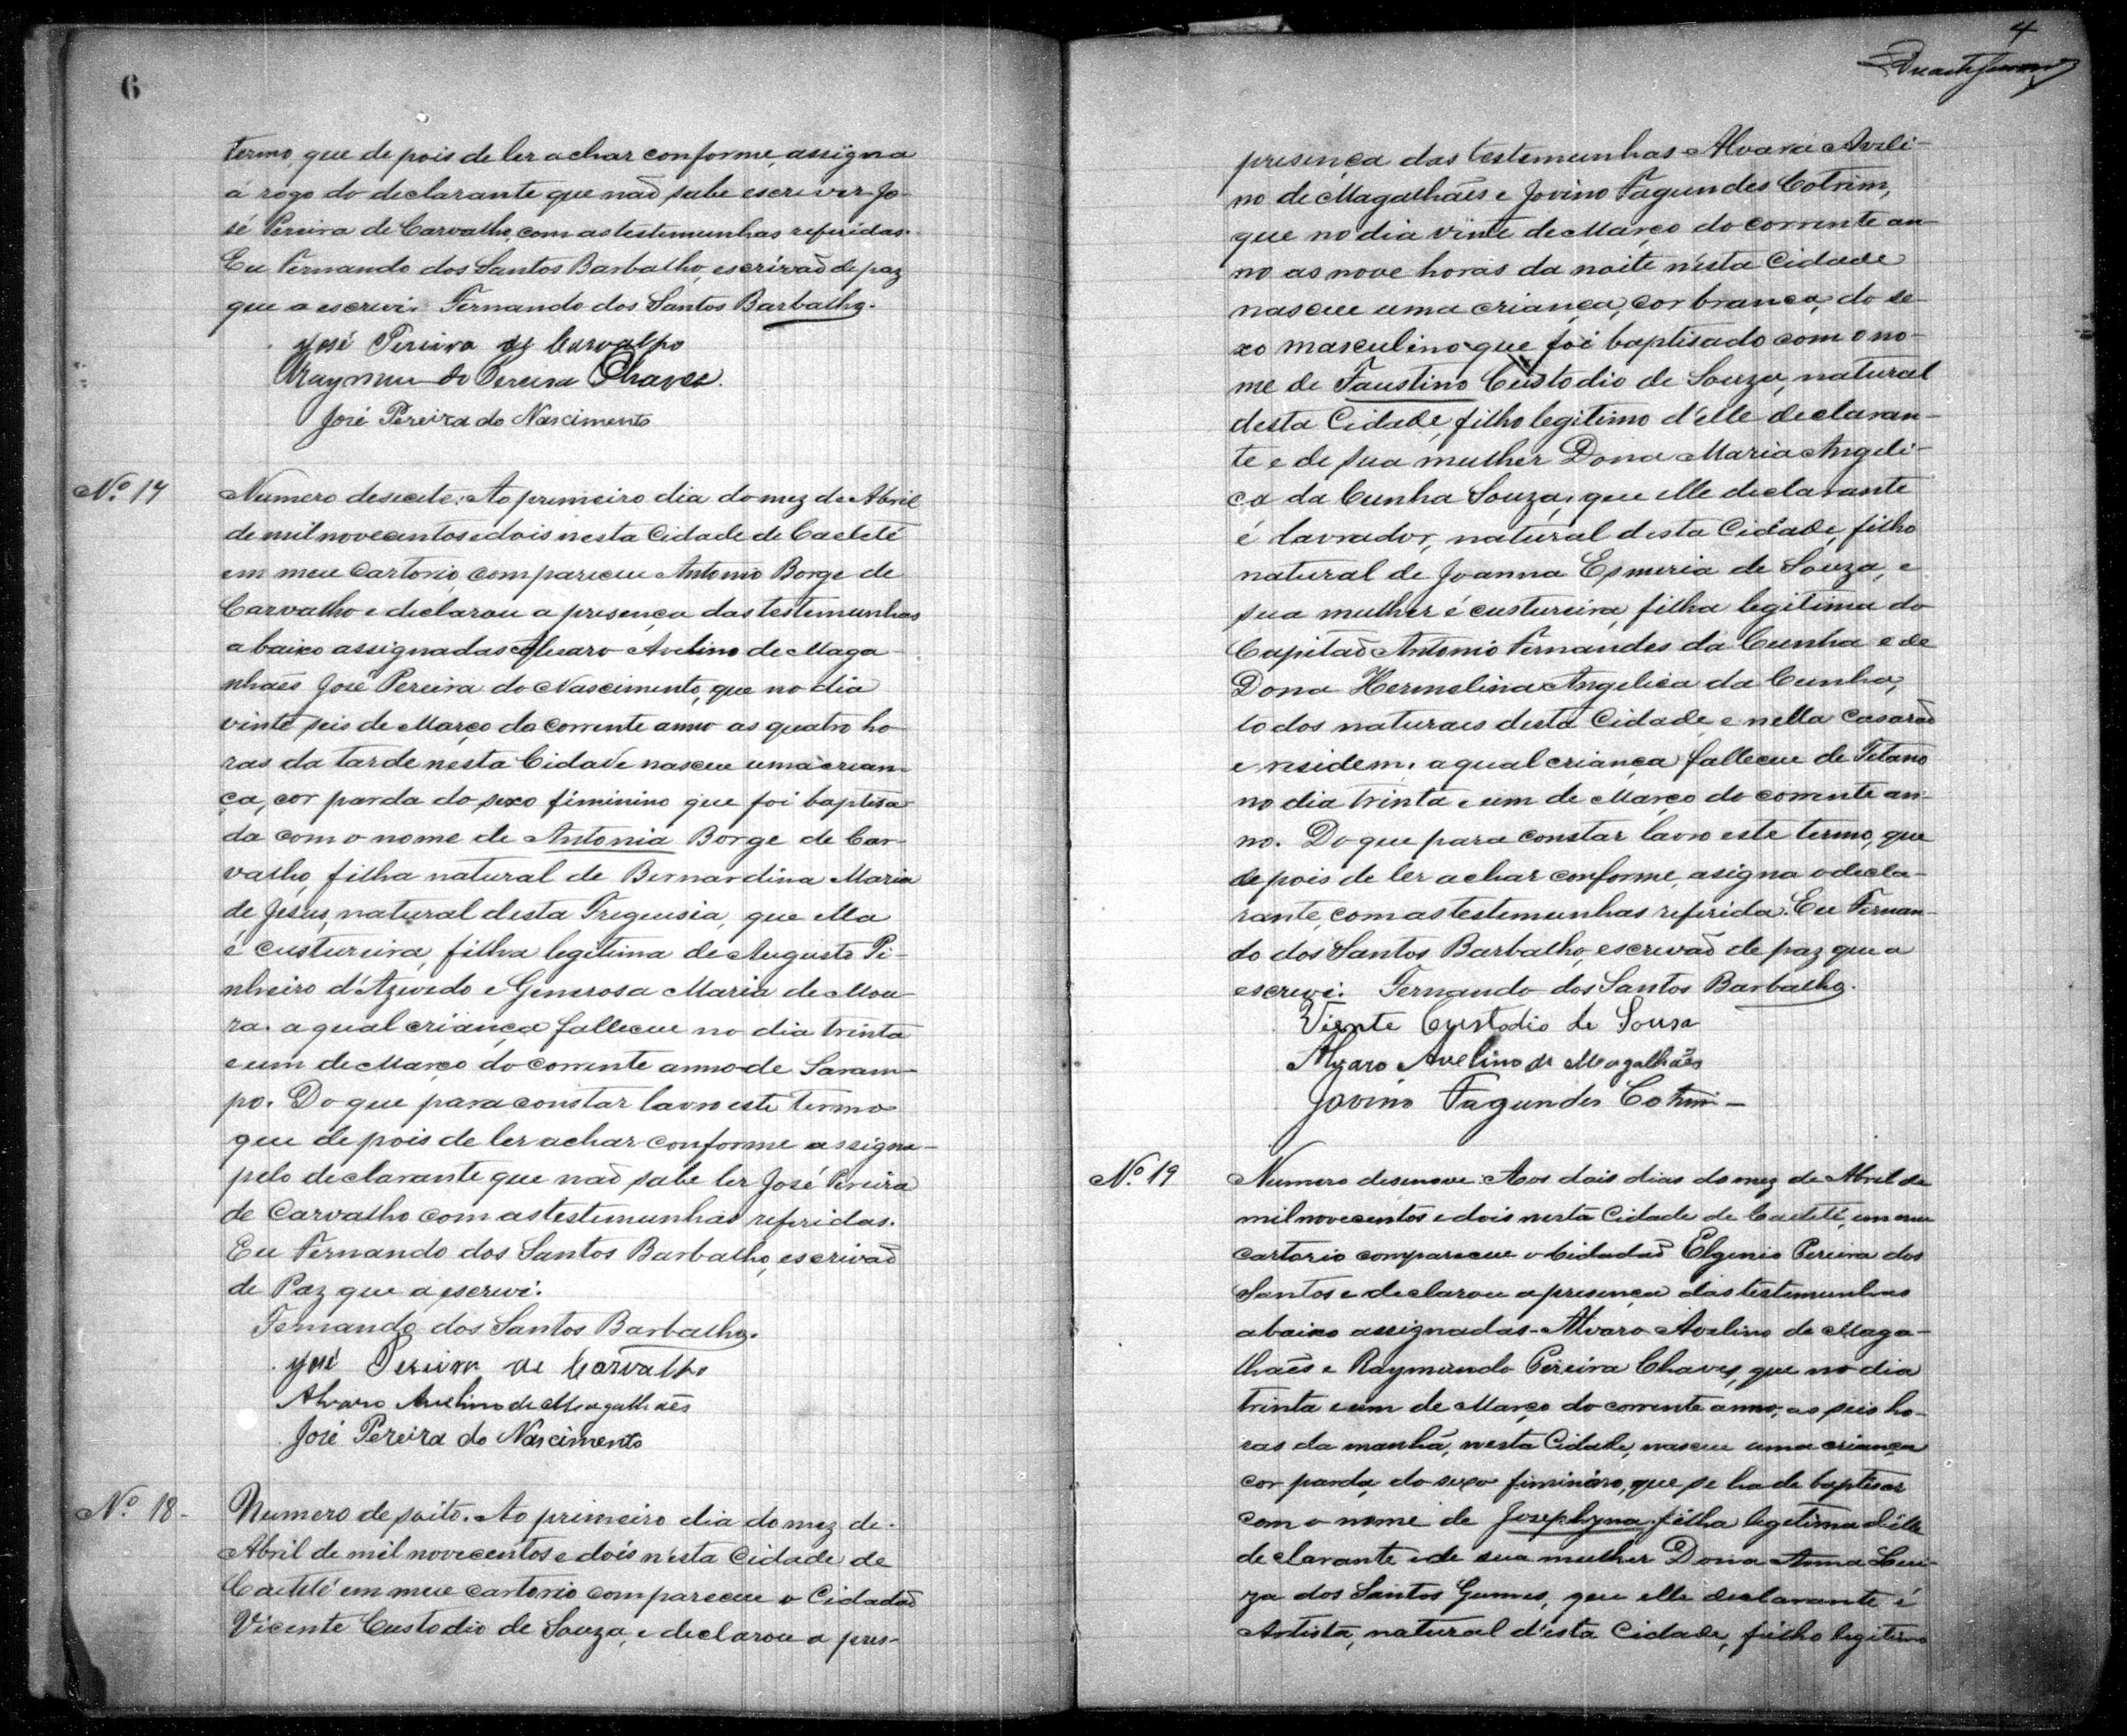 6
termo, que de pois de ler achar conforme, assigna
a rogo do declarante que naõ sabe escrever Jo-
sé Pereira de Carvalho, com as testemunhas referidas.
Eu Fernando dos Santos Barbalho, escrivaõ de paz
que a escrevi. Fernando dos Santos Barbalho.
José Pereira de Carvalho
Raymundo Pereira Chaves.
José Pereira do Nascimento
Nº 17
Numero desecete. Ao primeiro dia do mez de Abril
de mil novecentos e dois nesta Cidade de Caeteté
em meu Cartorio, compareceu Antonio Borge de
Carvalho e declarou a presença das testemunhas
abaixo assignadas Alvaro Avelino de Maga
nhaes José Pereira do Nascimento, que no dia
vinte seis de Março do corrente anno as quatro ho
ras da tarde nesta Cidade nasceu uma crian-
ça, cor parda do sexo fiminino que foi baptisa
da com o nome de Antonia Borge de Car-
valho, filha natural de Bernardina Maria
de Jesus, natural desta Freguesia, que ella
é custureira, filha legitima de Augusto Pi-
nheiro d'Azevedo e Generosa Maria de Mou
ra. a qual criança falleceu no dia trinta
e um de Março do corrente anno de Saram-
po. Do que para constar lavro este termo
que de pois de ler achar conforme assigna-
pelo declarante que naõ sabe ler José Pereira
de Carvalho com as testemunhas referidas.
Eu Fernando dos Santos Barbalho, escrivaõ
de Paz que a escrevi.
Fernando dos Santos Barbalho.
José Pereira de Carvalho
Alvaro Avelino de Magalhaēs
José Pereira do Nascimento
Nº 18-
Numero desoito. Ao primeiro dia do mez de
Abril de mil novecentos e dois n'esta Cidade de
Caeteté em meu cartorio compareceu o Cidadaõ
Vicente Custodio de Souza, e declarou a pres-
4
presença das testemunhas Alvaro Aveli-
no de Magalhaēs e Jovino Fagundes Cotrim,
que no dia vinte de Março do corrente an
no as nove horas da noite n'esta Cidade
nasceu uma criança, cor branca, do se-
xo masculino que foi baptisado com o no-
me de Faustino Custodio de Souza, natural
desta Cidade, filho legitimo d'elle declaran-
te e de sua mulher Dona Maria Angeli-
ca da Cunha Souza, que elle declarante
é lavrador, natural desta Cidade, filho
natural de Joanna Esmeria de Souza, e
sua mulher é custureira, filha legitima do
Capitaõ Antonio Fernandes da Cunha e de
Dona Hermelina Angelica da Cunha,
todos naturaes desta Cidade e nella casaraõ
e residem. a qual criança falleceu de Tetano
no dia trinta e um de Março do corrente an-
no. Do que para constar lavro este termo, que
depois de ler achar conforme, asigna o decla-
rante, com as testemunhas referida. Eu Fernan-
do dos Santos Barbalho, escrivaõ de paz que a
escrevi. Fernando dos Santos Barbalho.
Viente Custodio de Sousa
Alvaro Avelino de Magalhaēs
Jovino Fagundes Cotrim-
Nº 19
Numero desenove. Aos dois dias do mez de Abril de
mil novecentos e dois nesta Cidade de Caeteté, em meu
cartorio compareceu o Cidadaõ Elgenio Pereira dos
Santos e declarou a presença das testemunhas
abaixo assignadas Alvaro Avelino de Maga-
lhaēs e Raymundo Pereira Chaves, que no dia
trinta e um de Março do corrente anno, as seis ho-
ras da manhã, nesta Cidade, nasceu uma criança
cor parda, do sexo fiminino, que se ha de baptisar
com o nome de Josephyna, filha legitima d'elle
declarante e de sua mulher Dona Anna Lui-
za dos Santos Gumes, que elle declarante é
Artista, natural d'esta Cidade, filho legitimo